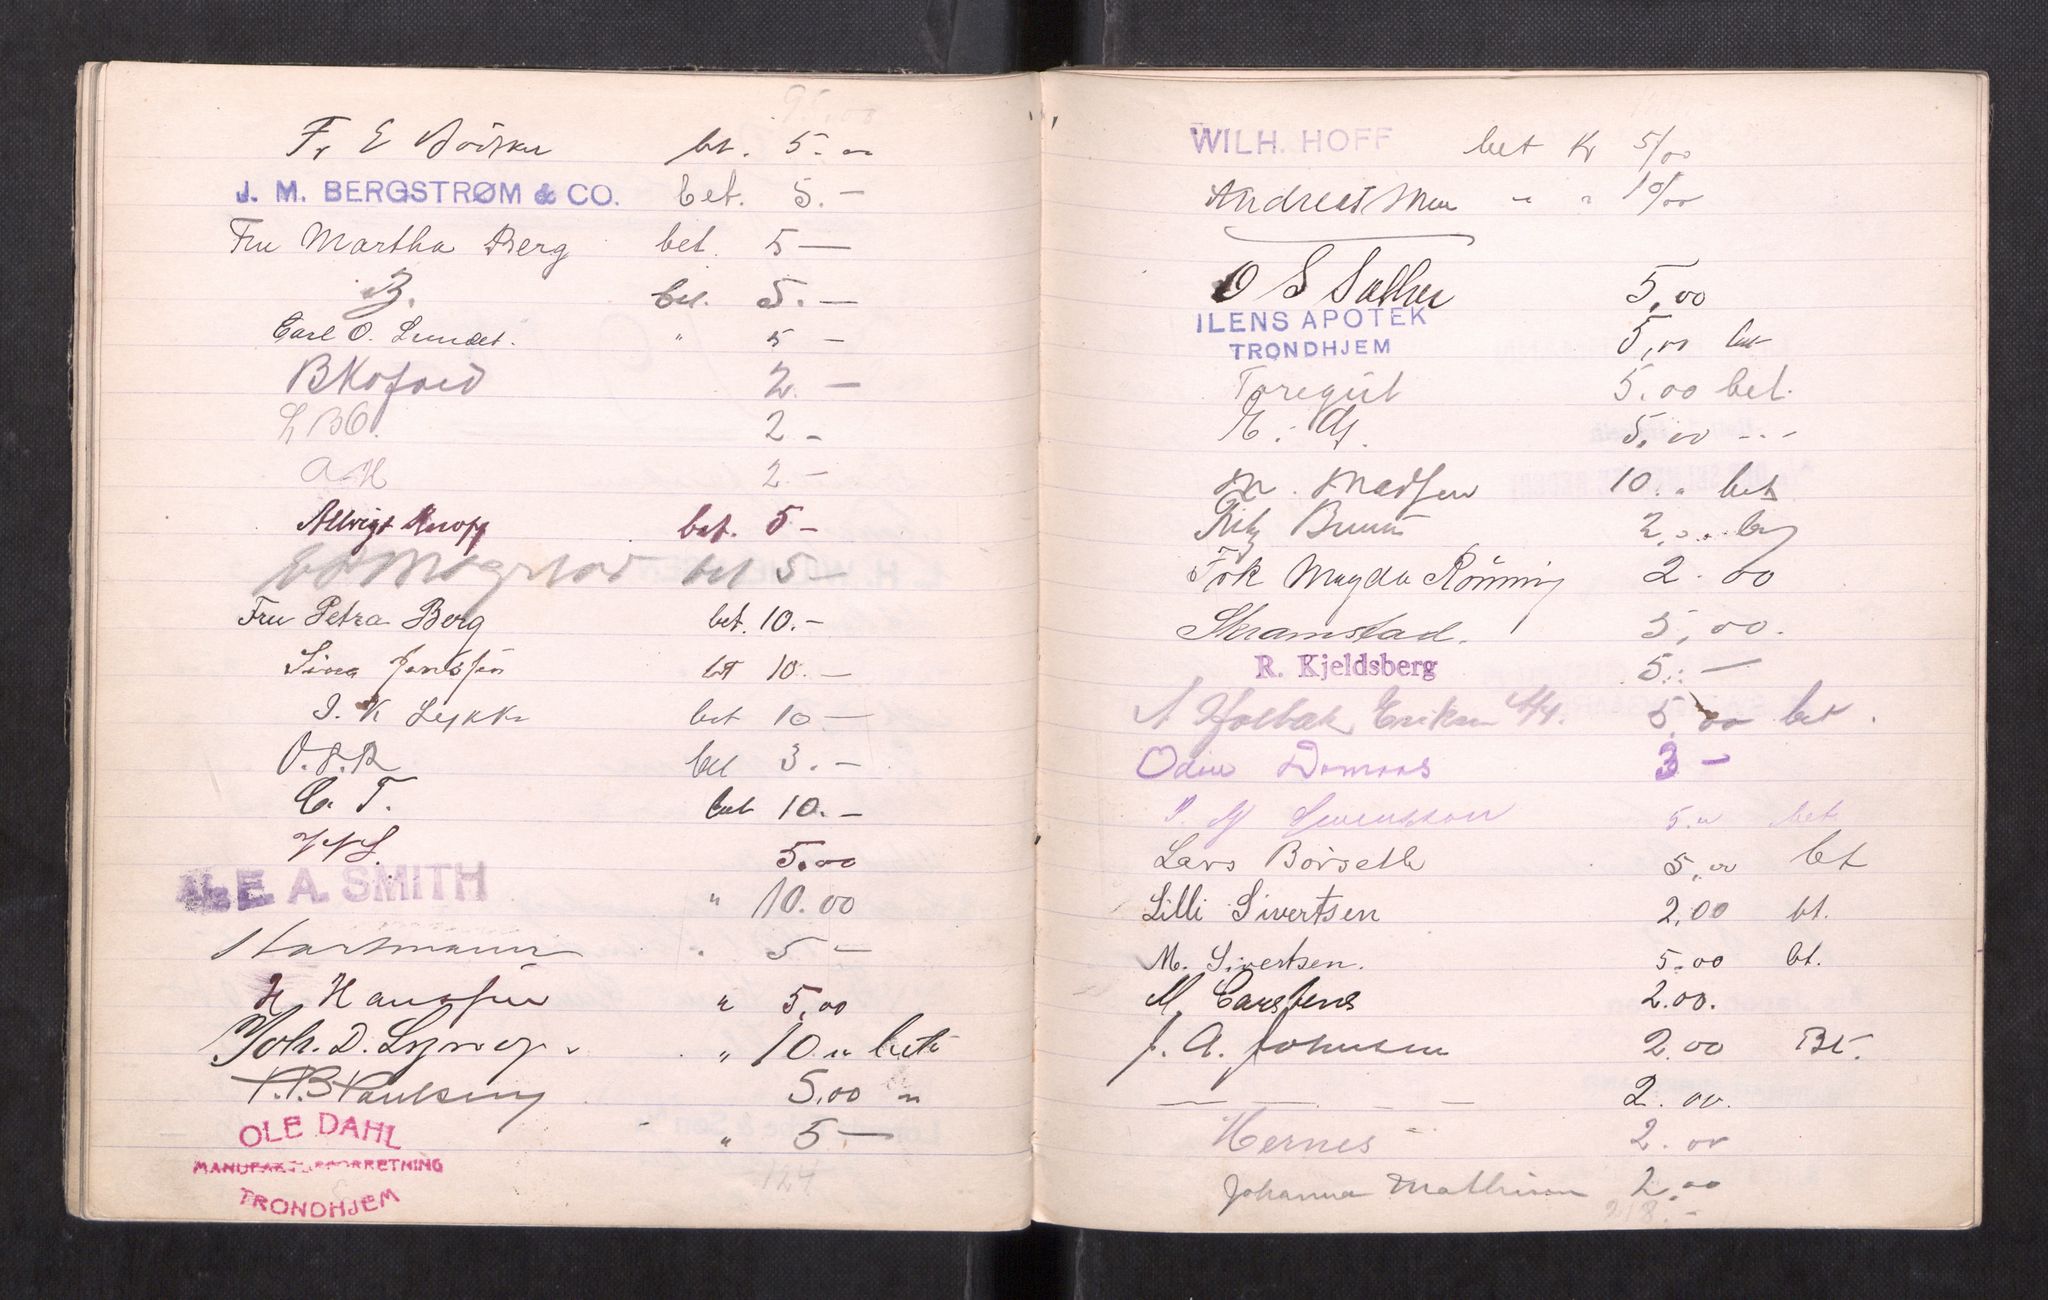 95.00
Fr E bet. 5.- „
J. M. BERGSTRØM & CO. bet. 5.-
Fru Martha Berg bet. 5 -
B. bet. 5. -
Carl O. Lundet. " 5 -
B Kofoed 2. -
2 -
A H 2. -
Allvigt Knopp bet. 5 -
bet 5 -
Fru Petra Berg bet. 10. -
Sina Jenssen bt 10. -
J. K Lykke bet 10 -
O.P.R bet 3. -
C. T. bet 10. -
5.00
E. A. SMITH " 10.00
Hartmann " 5 -
H Hanssen " 5,00
Joh. D. " 10 „ bet
Paulsen 5,00 „
OLE DAHL " 5 -
MANUFAKTURFORRETNING
TRONDHJEM
124
WILH. HOFF bet Kr 5/00
Andreas Moe " " 10/00
O S Sæther 5,00
ILENS APOTEK 5,00 bet
TRONDHJEM
Toregut 5.00 bet.
E. 5.00 - - -
M. Madsen 10. „ bet
Fritz Bruun 2. bet
Frk Magda Rönning 2.00
Skramstad. 5,00.
R. Kjeldsberg 5. -
A Holbæk Eriksen 5,00 bet.
Odin Domaas 3 -
Svensson 5. „ bet
Lars Borseth 5,00 bet
Lilli Sivertsen 2,00 bt.
M. Sivertsen. 5.00 bt.
M Carstens 2.00.
J. A. Johnsen 2.00 Bt.
— - - - - 2.00.
Hernes 2.00
Johanna Mathisen 2,00
218. -